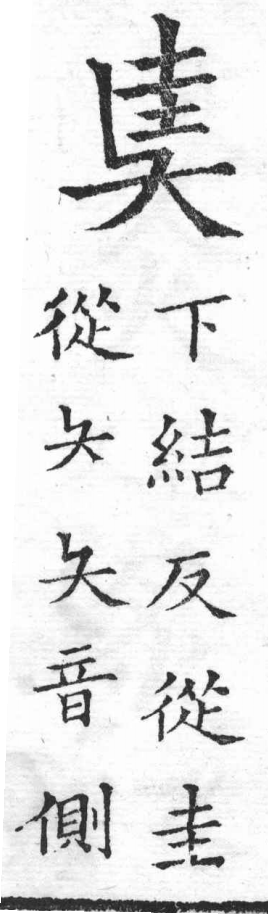 奊
下結反從圭
從夨夨音側